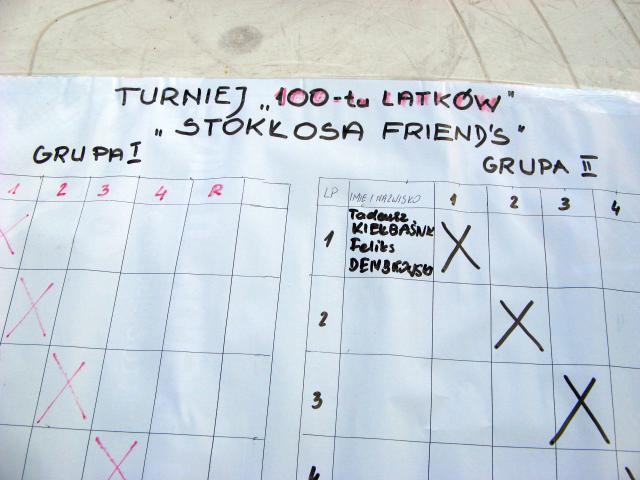 TURNIEJ „100-tu LATKÓW”
„STOKŁOSA FRIEND'S”
GRUPA I
1 2 3 4 R
GRUPA II
LP IMIĘ I NAZWISKO 1 2 3 4
1 Tadeusz
KIEŁBAŚNK
Feliks
2
3
4